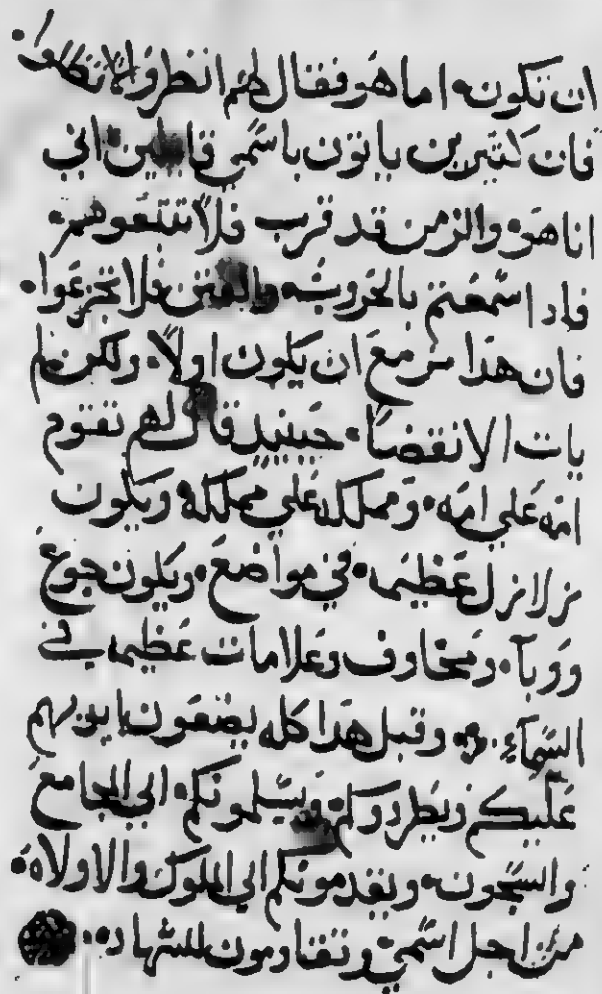 ان تكون اما هو فقال لهم انظروا لا تضلوا
فان كثيرين ياتون باسمي قايلين اني
انا هو والزمن قد قرب فلا تتبعوهم
فادا سمعتم بالحروب والفتن فلا تجزعوا
فان هدا مزمع ان يكون اولاً ولكن لم
يات الانقضا حينيد قال لهم تقوم
امه على امه ومملكه على مملكه ويكون
زلازل عظيمه في مواضع ويكون جوع
ووبآ ومخاوف وعلامات عظيمه في
السمآء وقبل هدا كله يضعون ايديهم
عليكم ويطردوكم ويسلمونكم الى المجامع
والسجون ويقدمونكم الى الملوك والاولاه
من اجل اسمي وتقادمون للشهاده